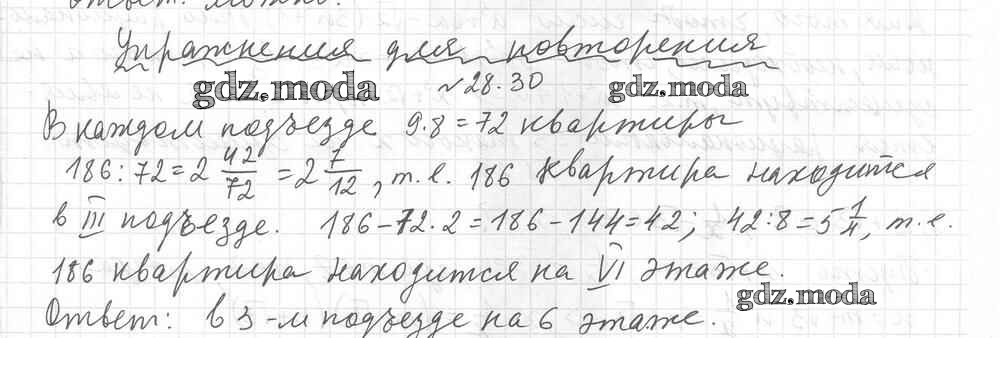 Ответ: можно.
Упражнения для повторения
gdz.moda
№28.30
gdz.moda
В каждом подъезде 9·8=72 квартиры
186:72=2 42/72 =2 7/12, т.е. 186 квартира находится
в III подъезде. 186-72·2=186-144=42; 42:8=5 1/4, т.е.
186 квартира находится на VI этаже.
gdz.moda
Ответ: в 3-м подъезде на 6 этаже.